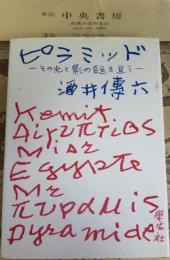 本店 中央書房
ピラミッド
―その光と影の謎を追う―
酒井傳六
Kemit
Aigyptios
Misr
Egypte
Mr
πυραμις
Pyramide
学生社